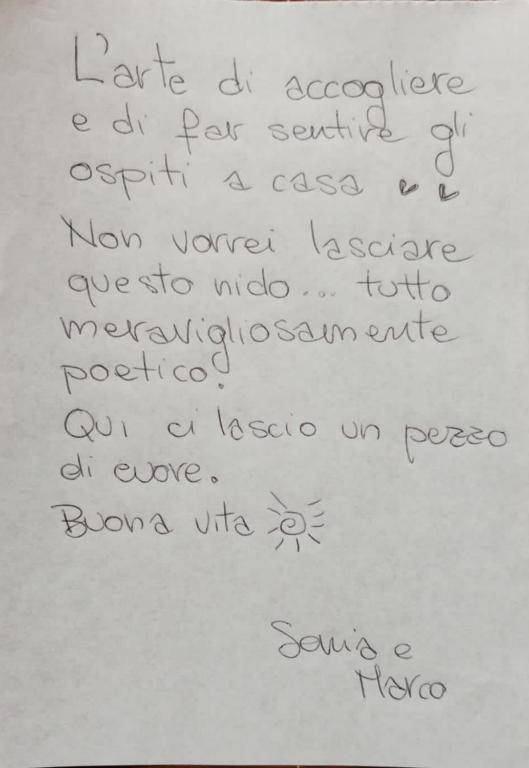 L'arte di accogliere
e di far sentire gli
ospiti a casa
Non vorrei lasciare
questo nido... tutto
meravigliosamente
poetico!
Qui ci lascio un pezzo
di cuore.
Buona vita
Sonia e
Marco